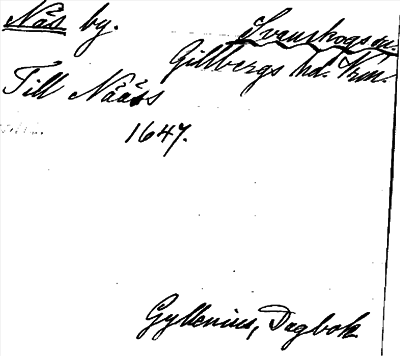 Näs by. Svanskogs sn.
Gillbergs hd. Vrm.
Till Nääs
1647.
Gyllenius, Dagbok